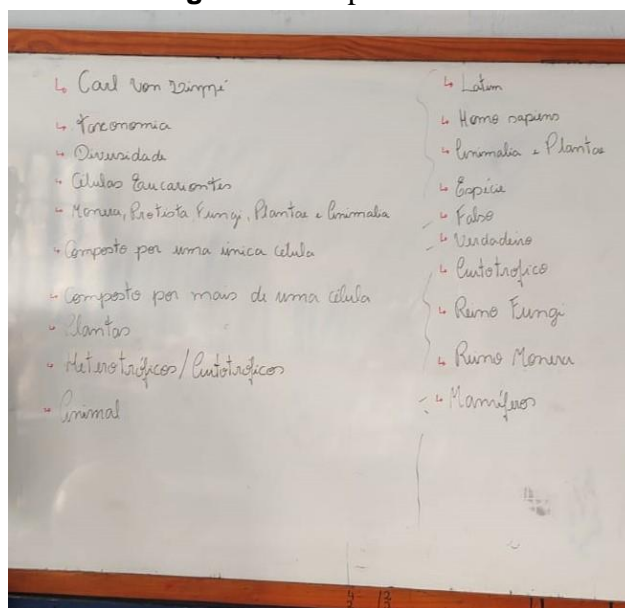 ↳ Carl Von Linné
↳ Taxonomia
↳ Diversidade
↳ Células Eucariontes
↳ Monera, Protista Fungi, Plantae e Animalia
↳ Composto por uma única célula
↳ Composto por mais de uma célula
↳ Plantas
↳ Heterotróficos/Autotróficos
↳ Animal
↳ Latim
↳ Homo sapiens
↳ Animalia e Plantae
↳ Espécie
↳ Falso
↳ Verdadeiro
↳ Autotrófico
↳ Reino Fungi
↳ Reino Monera
↳ Mamíferos